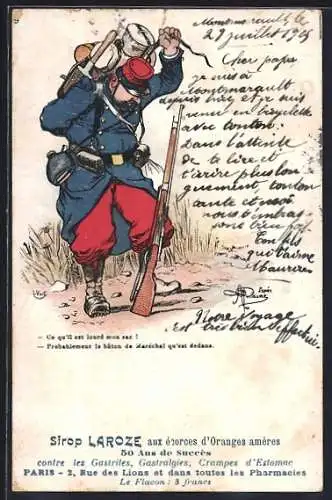 29 juillet 1905
Cher papa
je suis à
Montmarault
et je suis
venu en bicyclette
avec tonton
Dans l'attente
de te lire et
t'écrire plus lon
guement, tonton
tante et moi
nous t'embras
sons bien fort
ton fils
Maurice
Notre voyage
est très bien effectué.
Louis
— Ce qu'il est lourd mon sac !
— Probablement le bâton de Maréchal qu'est dedans.
Sirop LAROZE aux écorces d'Oranges amères
50 Ans de Succès
contre les Gastrites, Gastralgies, Crampes d'Estomac
PARIS - 2, Rue des Lions et dans toutes les Pharmacies
Le Flacon : 3 francs